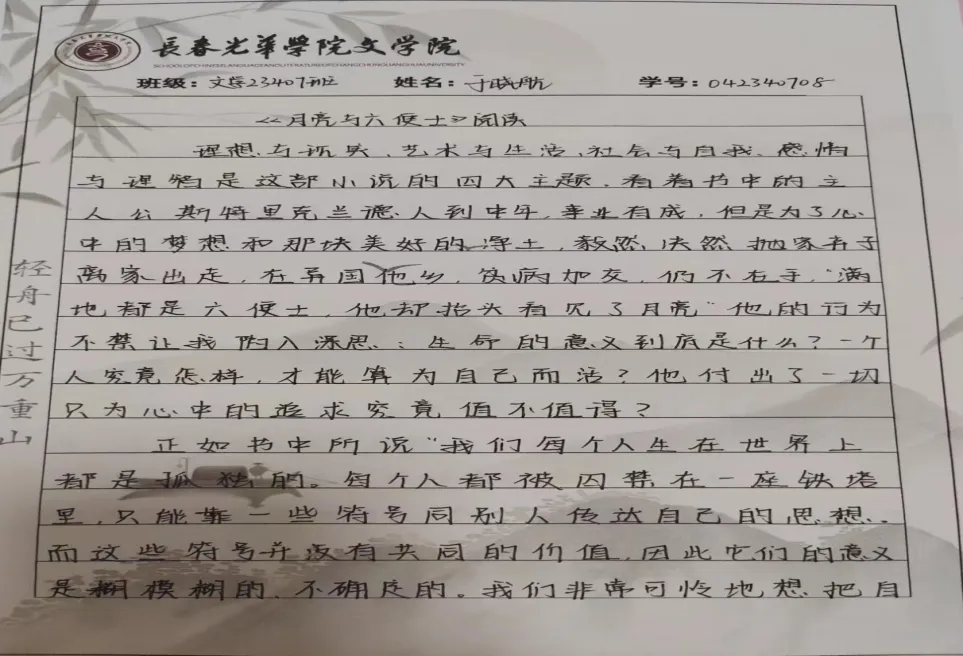 長春光華學院文学院
SCHOOL OF CHINESE LANGUAGE AND LITERATURE OF CHANGCHUN GUANGHUA UNIVERSITY
班级：文学23407班 姓名：于晓航 学号：042340708
《月亮与六便士》阅读
理想与现实、艺术与生活、社会与自我、感情
与理智是这部小说的四大主题。看着书中的主
人公斯特里克兰德人到中年，事业有成，但是为了心
中的梦想和那块美好的净土，毅然决然抛家弃子
离家出走，在异国他乡，贫病加交，仍不右手，“满
地都是六便士，他却抬头看见了月亮”他的行为
不禁让我陷入深思：生命的意义到底是什么？一个
人究竟怎样，才能算为自己而活？他付出了一切
只为心中的追求究竟值不值得？
正如书中所说“我们每个人生在世界上
都是孤独的。每个人都被囚禁在一座铁塔
里，只能靠一些符号同别人传达自己的思想。
而这些符号并没有共同的价值，因此它们的意义
是模糊的、不确定的。我们非常可怜地想把自
轻舟已过万重山